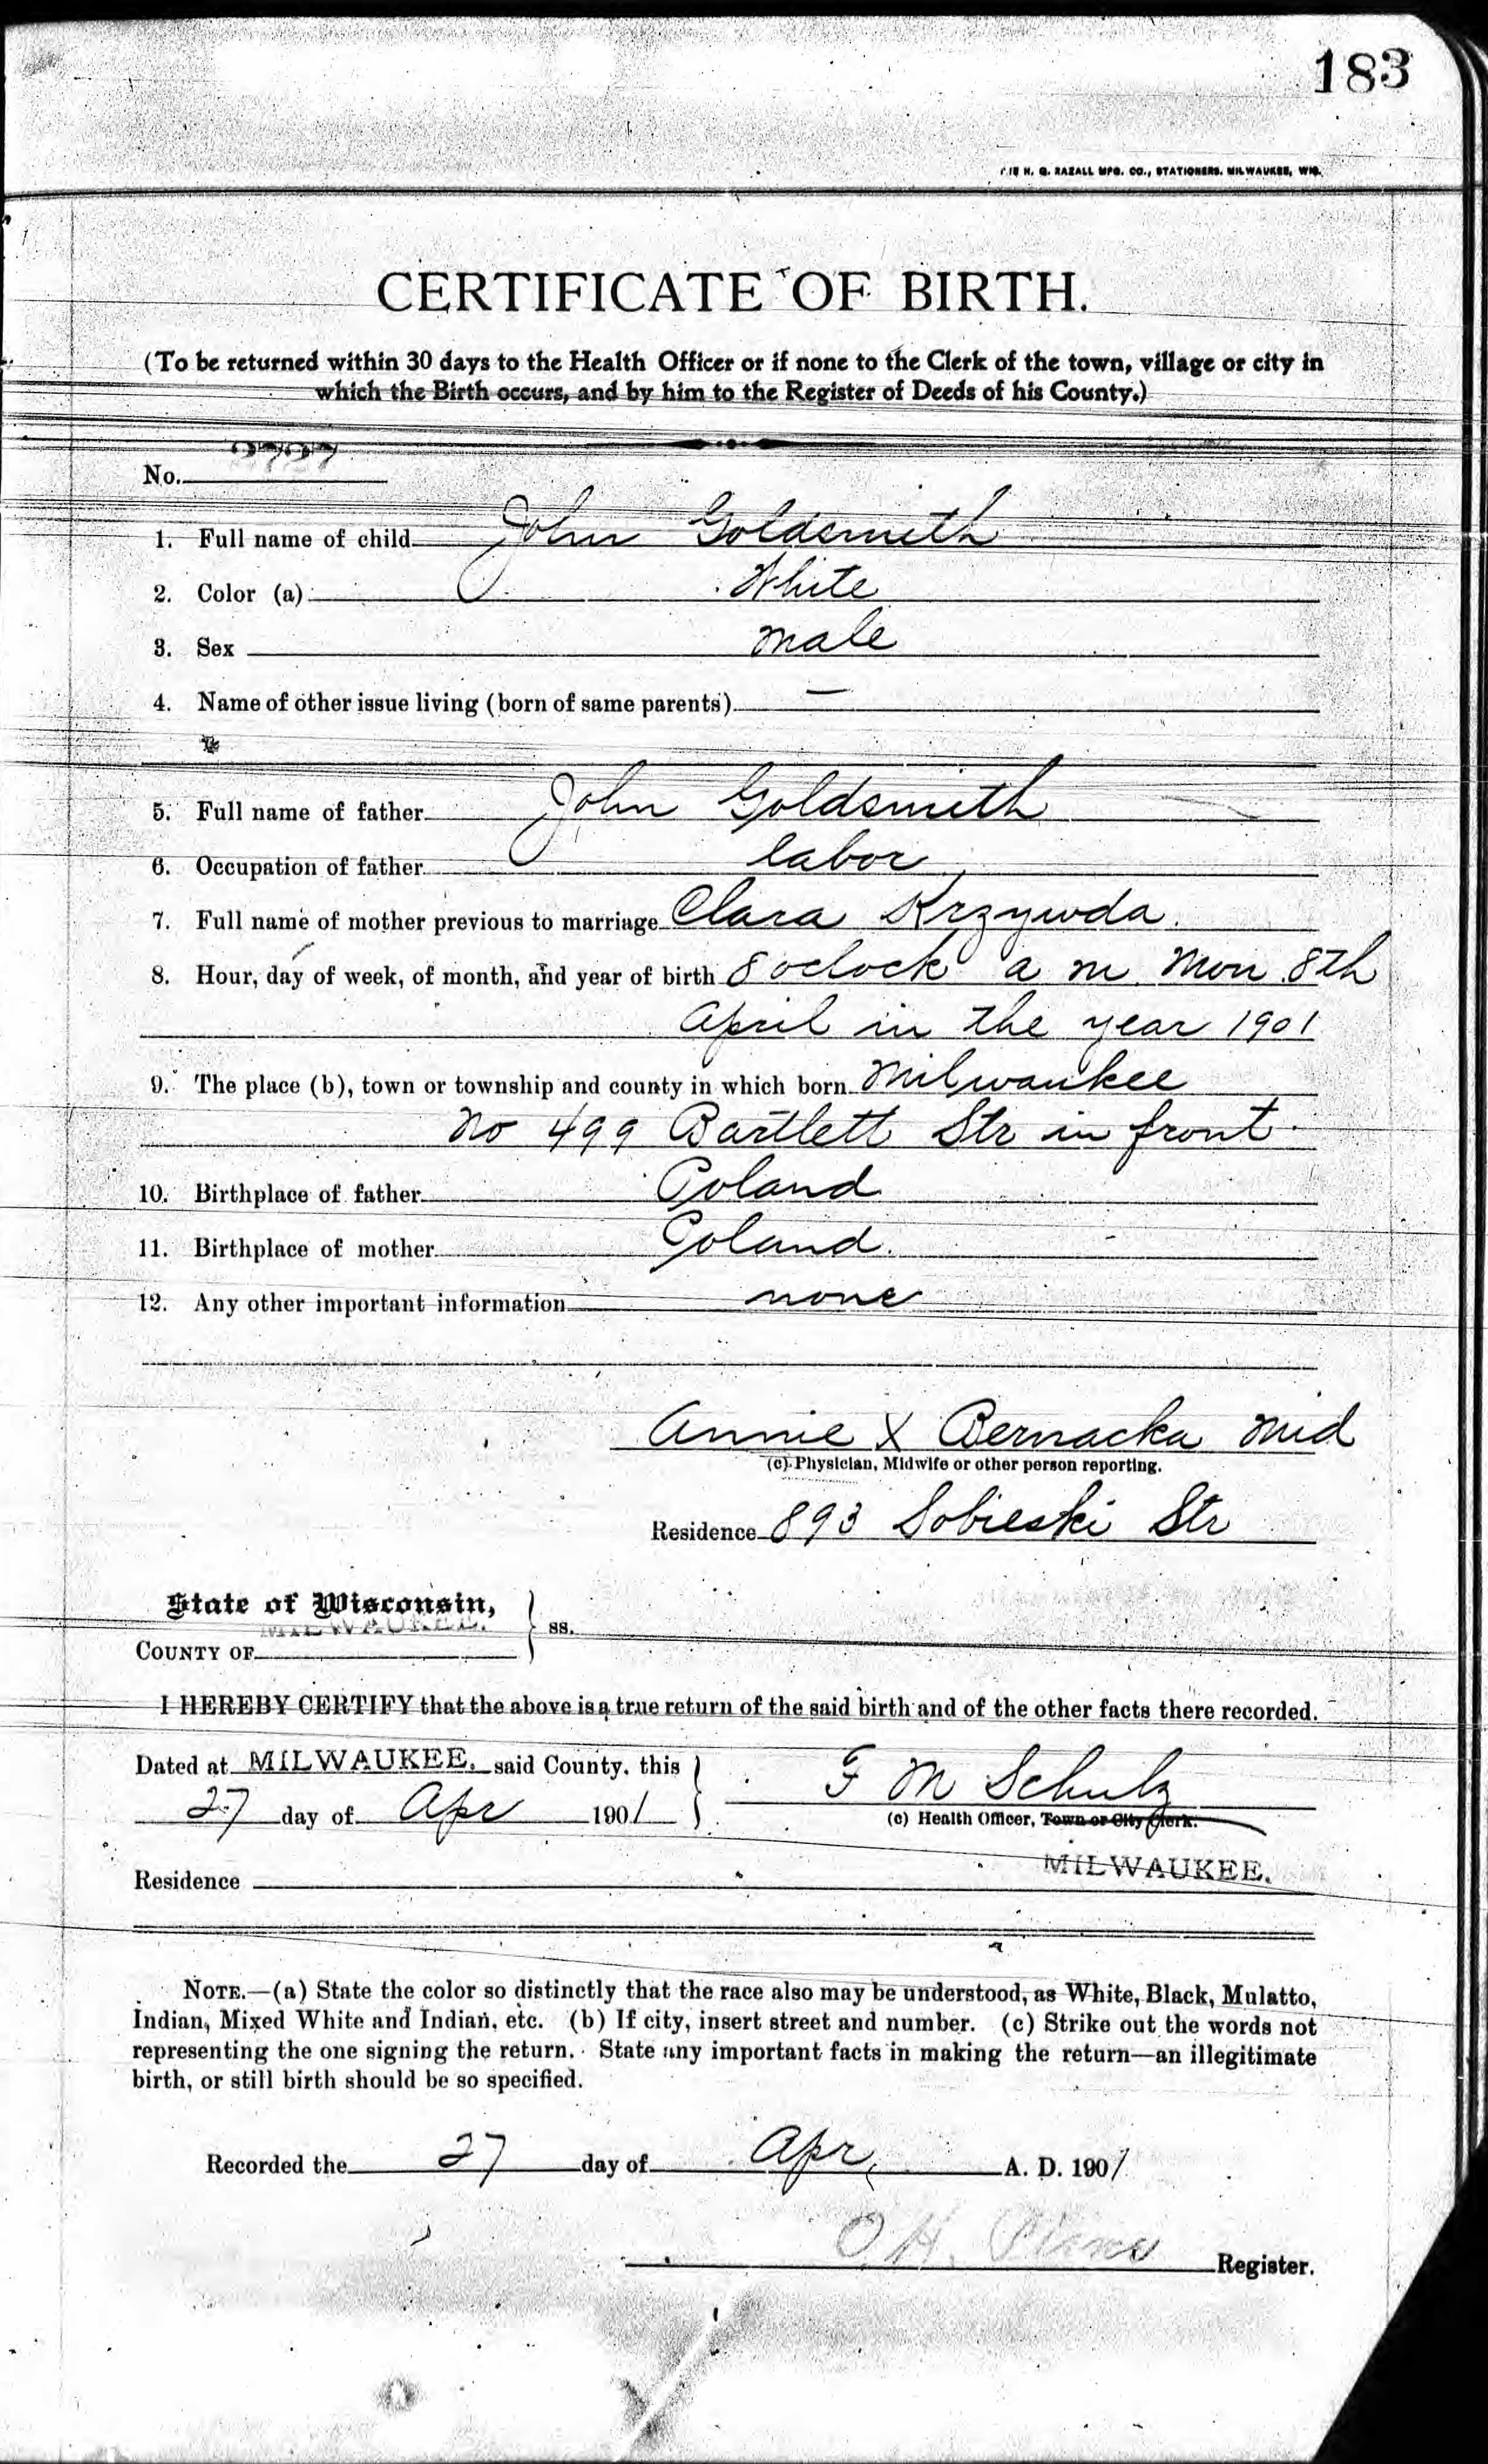 183
H. G. RAZALL MFG. CO., STATIONERS. MILWAUKEE, WIS.
CERTIFICATE OF BIRTH.
(To be returned within 30 days to the Health Officer or if none to the Clerk of the town, village or city in
which the Birth occurs, and by him to the Register of Deeds of his County.)
No.
1. Full name of child John Goldsmith
2. Color (a) White
3. Sex male
4. Name of other issue living (born of same parents) —
5. Full name of father John Goldsmith
6. Occupation of father labor
7. Full name of mother previous to marriage Clara Krzywda.
8. Hour, day of week, of month, and year of birth 8 oclock a m Mon 8th
April in the year 1901
9. The place (b), town or township and county in which born Milwaukee
No 499 Bartlett Str in front
10. Birthplace of father Poland
11. Birthplace of mother Poland.
12. Any other important information none
Annie X Bernacka Mid
(c) Physician, Midwife or other person reporting.
Residence 893 Sobieski Str
State of Wisconsin,
MILWAUKEE. ss.
COUNTY OF
I HEREBY CERTIFY that the above is a true return of the said birth and of the other facts there recorded.
Dated at MILWAUKEE. said County, this
F M Schulz
27 day of Apr 1901
(c) Health Officer, Town or City Clerk.
MILWAUKEE.
Residence
NOTE.—(a) State the color so distinctly that the race also may be understood, as White, Black, Mulatto,
Indian, Mixed White and Indian, etc. (b) If city, insert street and number. (c) Strike out the words not
representing the one signing the return. State any important facts in making the return—an illegitimate
birth, or still birth should be so specified.
Recorded the 27 day of Apr, A. D. 1901
O H. Register.